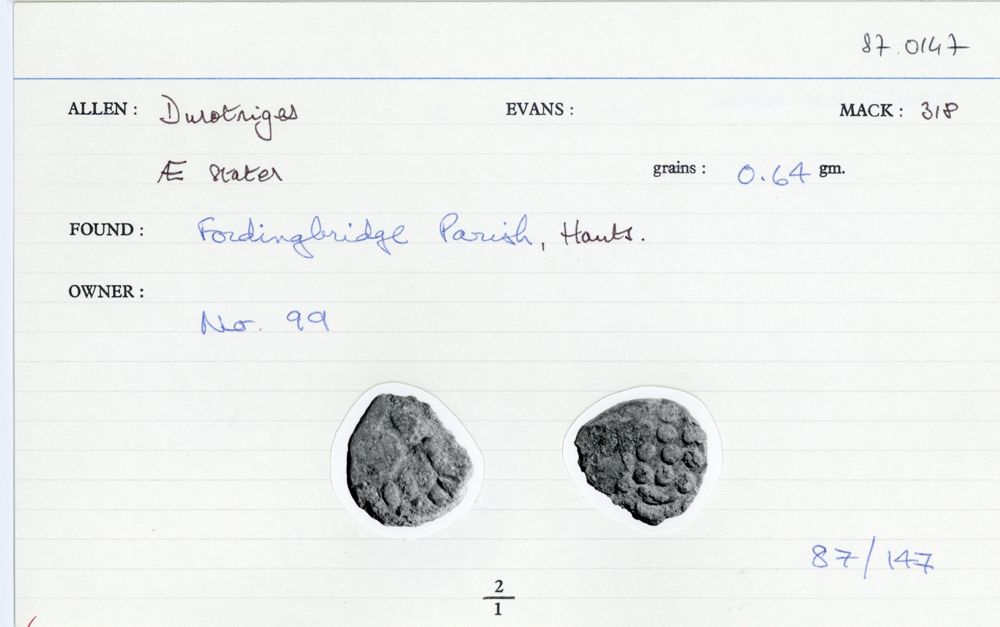 87.0147
ALLEN : Durotriges EVANS : MACK : 318
Æ stater grains : 0.64 gm.
FOUND : Fordingbridge Parish, Hants.
OWNER :
No. 99
87/147
2
1